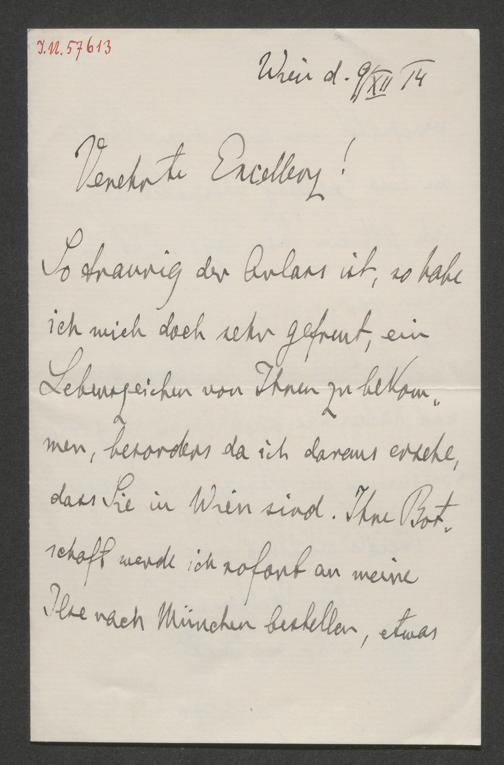 I.N. 57613
Wien d. 9/XII 14
Verehrte Excellenz!
So traurig der Anlass ist, so habe
ich mich doch sehr gefreut, ein
Lebenszeichen von Ihnen zu bekom„
men, besonders da ich daraus ersehe,
dass Sie in Wien sind. Ihre Bot„
schaft werde ich sofort an meine
Ilse nach München bestellen, etwas